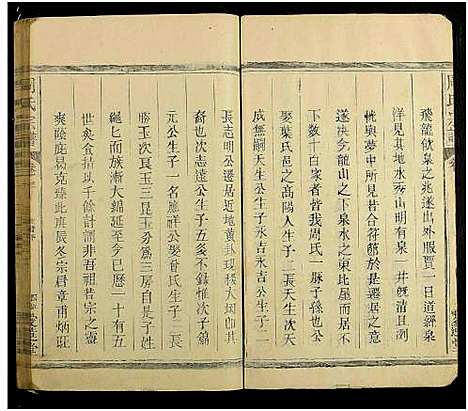 飛龍飲泉之兆遂出外服賈一日道經泉
洋見其地水秀山明有泉一井甚清且洌
與夢中所見景象符合符館於是遷居焉
遂決今龍山之下泉水之東比屋而居不
下數十百家者皆我周氏一脈子孫也公
娶葉氏邑之高陽人生子二長天生次天
成無嗣天生公生子永吉永吉公生子二
長志明公遷居近地黃卦現發大坂伯其
裔也次志遠公生子五爻不録惟次子錫
元公生子一名雎祥公娶昝氏生子二長
勝玉次良玉三昆玉分爲三房自是子姓
繩匕而族漸大錦延至今已歷一十有五
世矣食指以千餘計謂非吾祖昔宗之靈
爽蔭庇易克臻此真辰冬宗君章甫炳旺
周氏宗譜
愛蓮堂